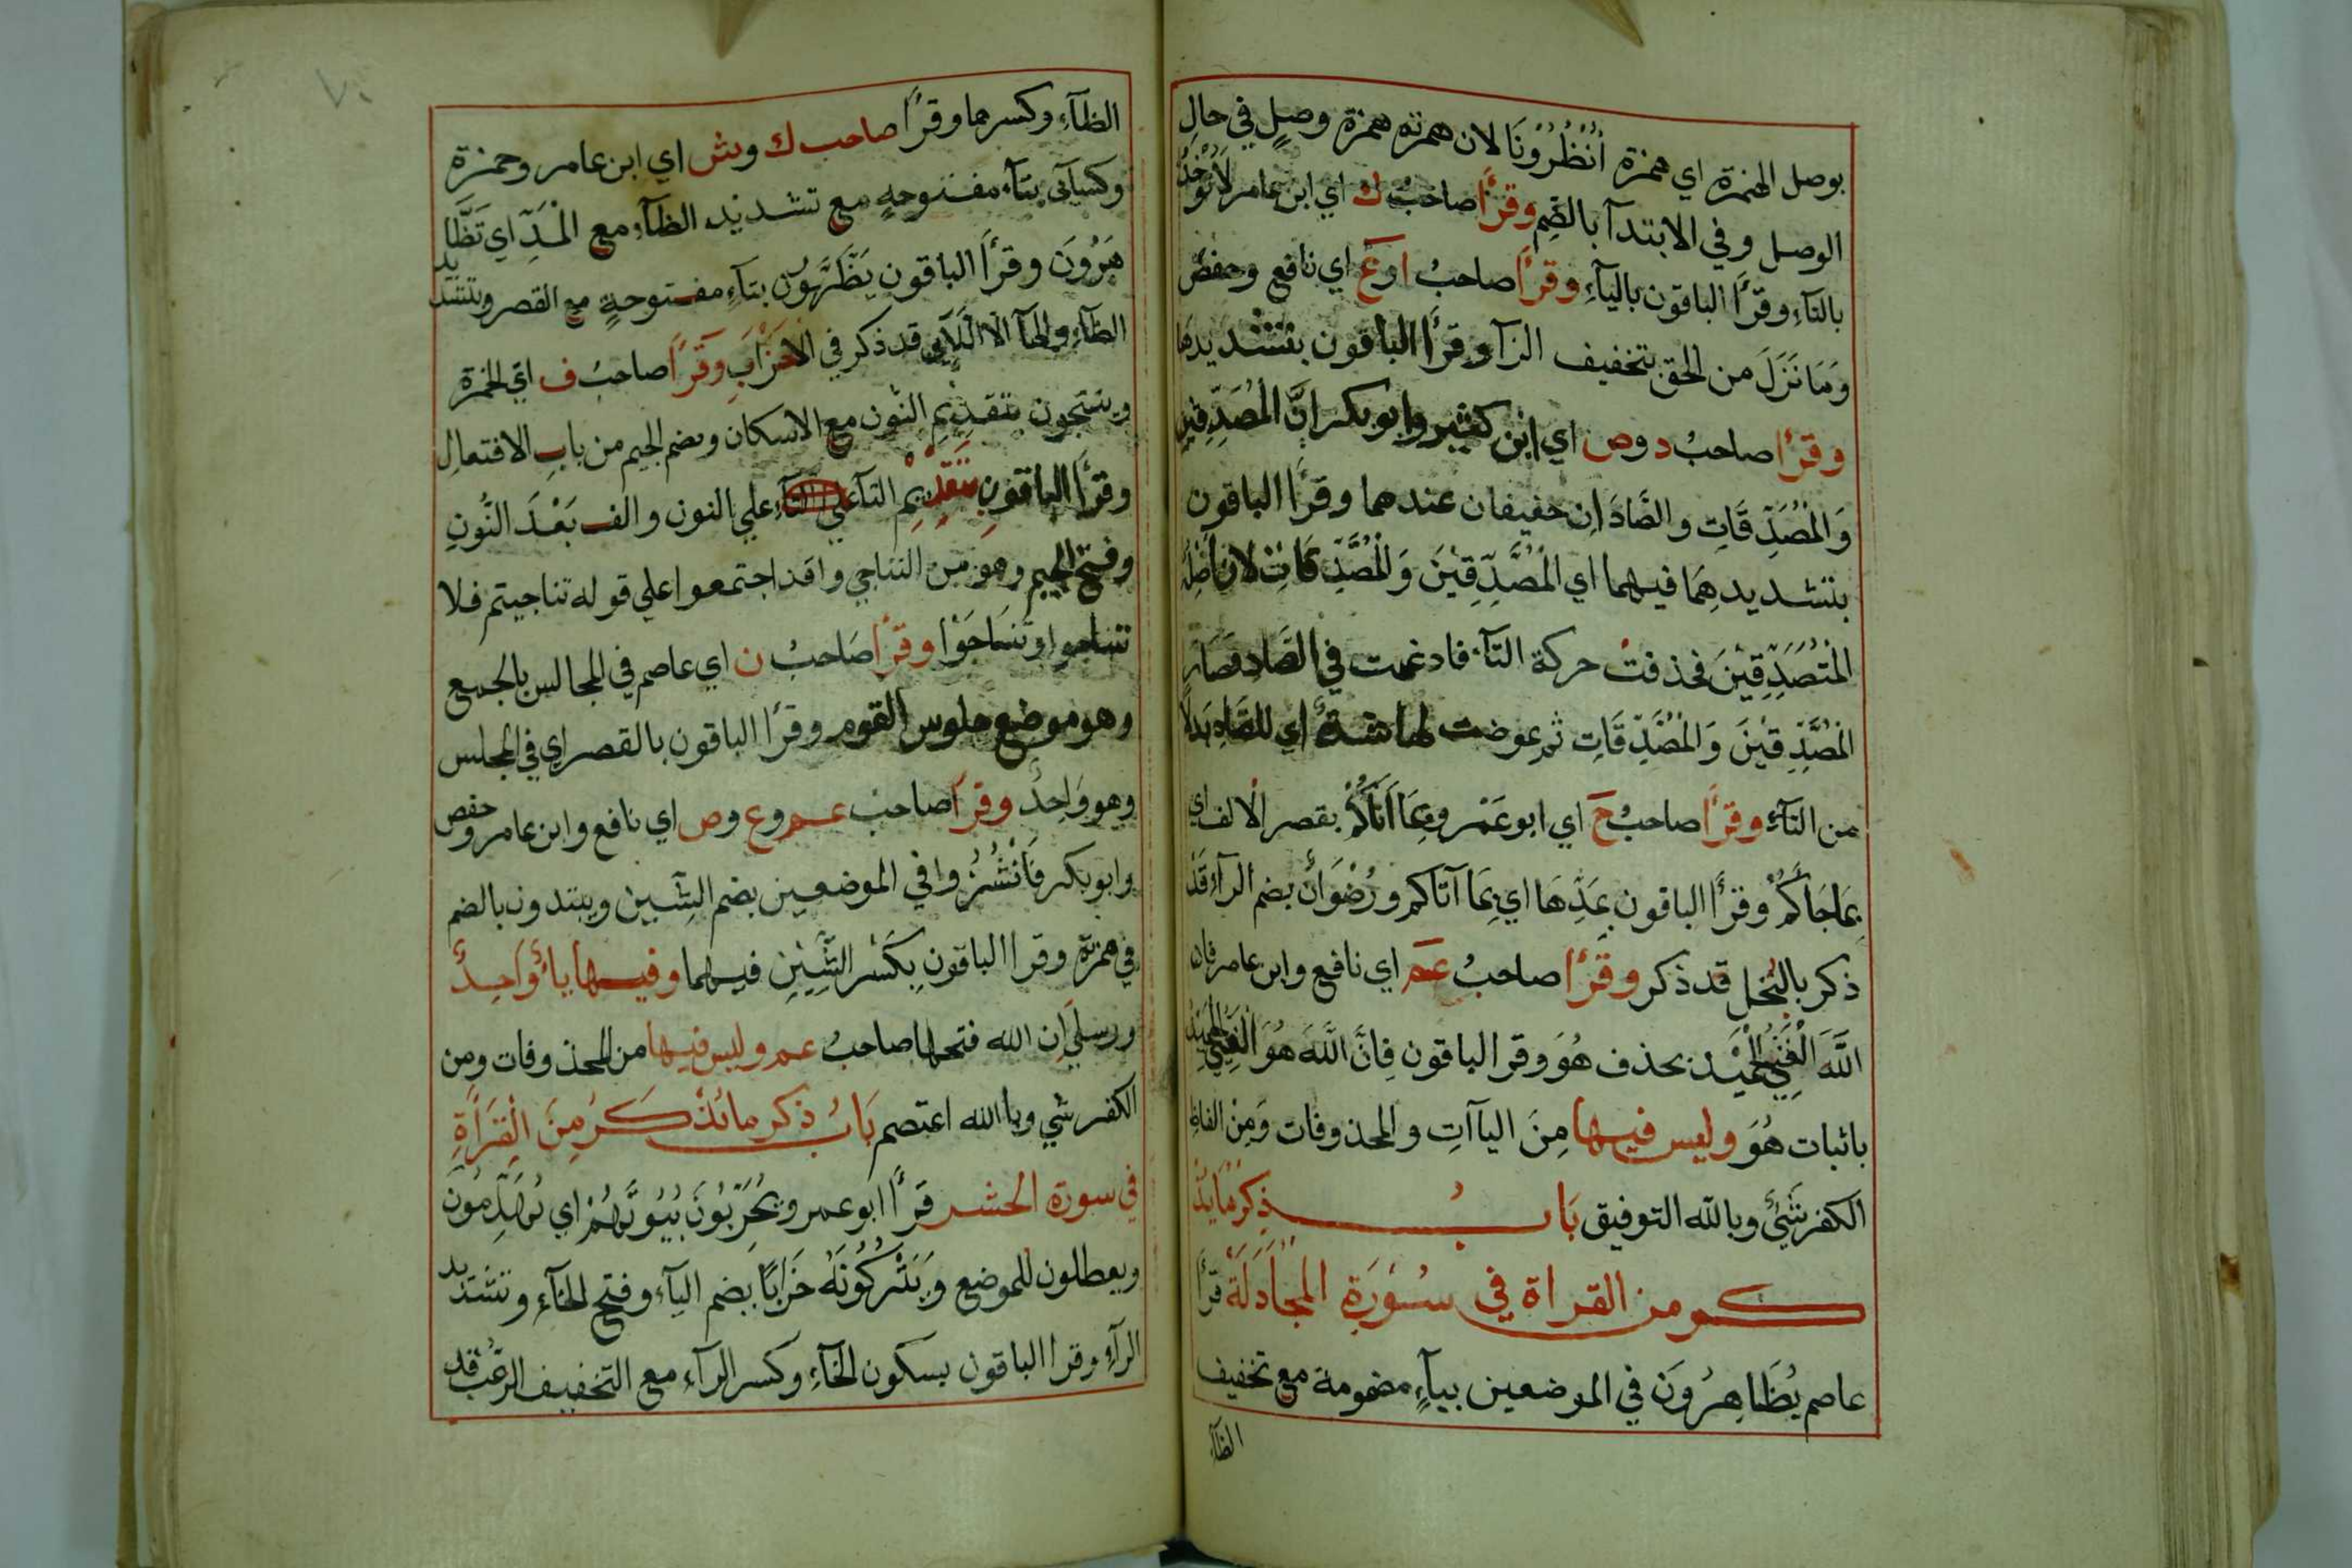 بوصل الهمزة اي همزة اُنْظُرُوْنَا لان همزته همزة وصلٍ في حالِ
الوصل وفي الابتدآ بالضم وقرأ صاحبُ ك اي ابن عامر لَا تُؤْخَذُ
بالتآءِ وقرأ الباقون باليآءِ وقرأ صاحبُ ا وعَ اي نافع وحفص
وَمَا نَزَلَ من الحق بتخفيف الزآ وقرأ الباقون بتشديدها
وقرأ صاحبُ د وص اي ابن كثير وابو بكر اِنَّ الْمُصَدِّقِين
وَالْمُصَدِّقَاتِ والصَّادَانِ خفيفان عندهما وقرأ الباقون
بتشديدهِمَا فيهما اي الْمُصَّدِّقِيْنَ وَالْمُصَّدِّقَاتِ لان اَصْلَهُ
الْمُتَصَدِّقِيْنَ فحذفتْ حركة التآءِ فادغمت في الصَّادِ فصَارَ
الْمُصَّدِّقِيْنَ وَالْمُصَّدِّقَاتِ ثم عوضت لها شدةٌ اي للصَّادِ بَدلاً
من التآءِ وقرأ صاحبُ حَ اي ابو عَمْر وبِمَا اَتَاكُمْ بقصر الالف اي
بِمَا جَاَكُمْ وقرأ الباقون بِمَدِّهَا اي بِمَا آتَاكم ورُضْوَانٌ بضم الرآءِ قَدْ
ذكر بالبُخل قد ذكر وقرأ صاحبُ عَم اي نافع وابن عامر فان
اللَّهَ الْغَنِيُّ الْحَمِيْد بحذف هُوَ وقرا الباقون فِانَّ اللَّهَ هُوَ الْغَنِيُّ الْحَمِيْدُ
باثبات هُوَ وليس فيها مِنَ الياآتِ والمحذوفات وَمِنْ الفاظ
الكفر شَيْءٌ وبالله التوفيق بَابُ ذِكرُ مَا يذ
كر من القراة في سُوْرَةِ الْمُجَادَلَة قرأ
عاصم يُظَاهِرُوَن في الموضعين بيآءٍ مضمومة مع تخفيف
الظآءِ
الظآءِ وكسرها وقرأ صاحب ك وش اي ابن عامر وحمزة
وكسآئي بتآء مفتوحهٍ مع تشديد الظآءِ مع الْمَدِّ اي تَظَّا
هَرُوْنَ وقرأ الباقون يَظَّهَّرُوْنَ بتآءِ مفتوحةٍ مع القصر وتشديد
الظآءِ والهآ الَّا اللَّآئِي قد ذكر في الاحْزَاب وَقَرأ صاحبُ ف اي الحمزة
وينتجون بتقديم النُون مع الاسكان وضم الجيم من بابِ الافتعال
وقرأ الباقون بتَقْدِيْمِ التآ علي التآءِ علي النون والف بَعْدَ النُونِ
وفتح الجيم وهو من التناجي واقد اجتمعوا علي قوله تناجيتم فلا
تتناجوا وتنَاجَوْا وقرأ صَاحبُ ن اي عاصم في المجالس بالجمع
وهو موضع جلوس القوم وقرأ الباقون بالقصر اي في المجلس
وهو وَاحِدٌ وقرأ صاحبُ عم وع وص اي نافع وابن عامر وحفص
وابو بكر فَانْشُزُوا في الموضعين بضم الشِّين ويبتدون بالضم
في همزة وقرا الباقونِ بِكَسْر الشِّيْنِ فيهما وفيها ياءٌ وَاحدٌ
ورسلي اِن الله فتحها صاحبُ عم وليس فيها من المحذوفات ومن
الكفر شي وبا الله اعتصم بَابُ ذكر ما يُذكَرُ مِنَ الْقِرَاةِ
في سورة الحشر قرأ ابو عمر ويُخَرِّبُونَ بُيُوْتَهُمْ اي يُهَدِّمُون
ويعطلون للموضع وَيَتْرُكُونَهُ خَرَابًا بضم اليآءِ وفتح الخآء وتشديد
الرآءِ وقرا الباقون بسكون الخآءِ وكسر الرآءِ مع التخفيف الرعب قد